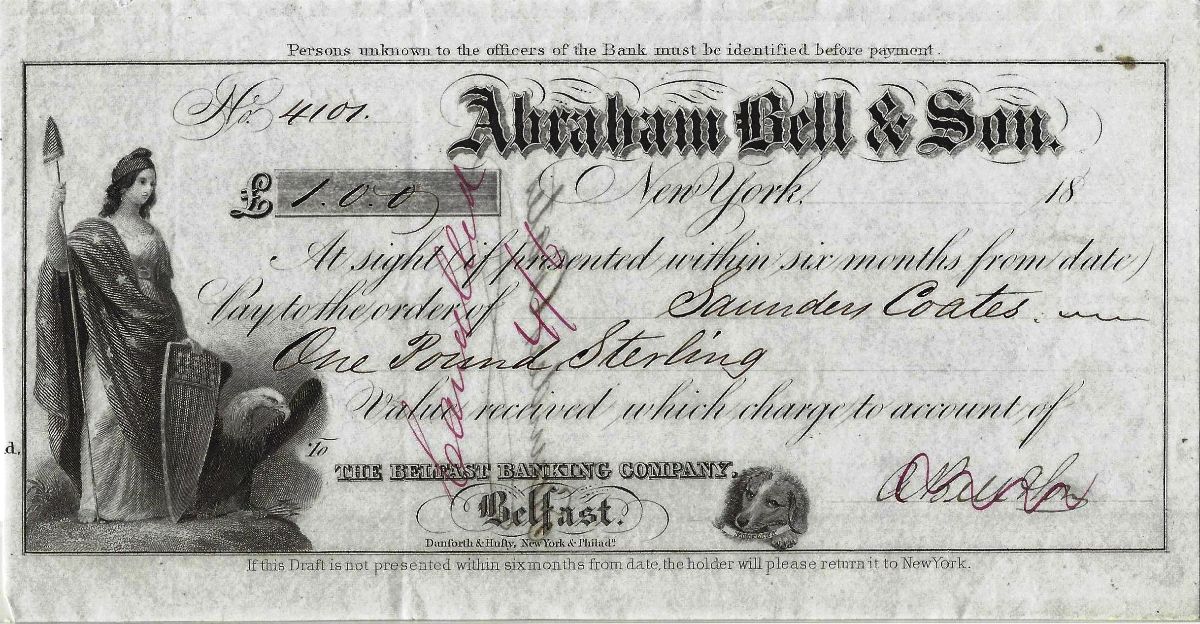 Persons unknown to the officers of the Bank must be identified before payment.
No. 4101.
Abraham Bell & Son.
£ 1.0.0
New York, 18
At sight (if presented within six months from date)
Pay to the order of Saunders Coates.
One Pound Sterling
Value received which charge to account of
d,
To
THE BELFAST BANKING COMPANY.
Belfast.
A Bell & Son
Danforth & Hufty, New York & Philada.
If this Draft is not presented within six months from date, the holder will please return it to New York.
Cancelled